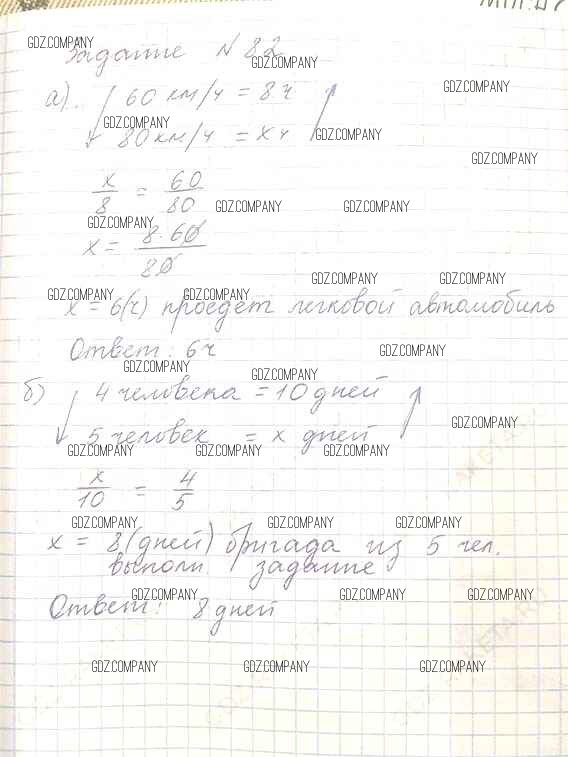 GDZ.COMPANY
Задание N 82
GDZ.COMPANY
а). 60 км/ч = 8 ч
GDZ.COMPANY
GDZ.COMPANY
80 км/ч = х ч
GDZ.COMPANY
GDZ.COMPANY
x/8 = 60/80
GDZ.COMPANY GDZ.COMPANY
GDZ.COMPANY
x = 8·60/80
GDZ.COMPANY GDZ.COMPANY
GDZ.COMPANY GDZ.COMPANY
x = 6(ч) проедет легковой автомобиль
Ответ: 6 ч
GDZ.COMPANY
GDZ.COMPANY
GDZ.COMPANY
б) 4 человека = 10 дней
GDZ.COMPANY
5 человек = x дней
GDZ.COMPANY GDZ.COMPANY GDZ.COMPANY
x/10 = 4/5
GDZ.COMPANY GDZ.COMPANY GDZ.COMPANY
x = 8 (дней) бригада из 5 чел.
выполн. задание
GDZ.COMPANY GDZ.COMPANY GDZ.COMPANY
Ответ: 8 дней
GDZ.COMPANY GDZ.COMPANY GDZ.COMPANY